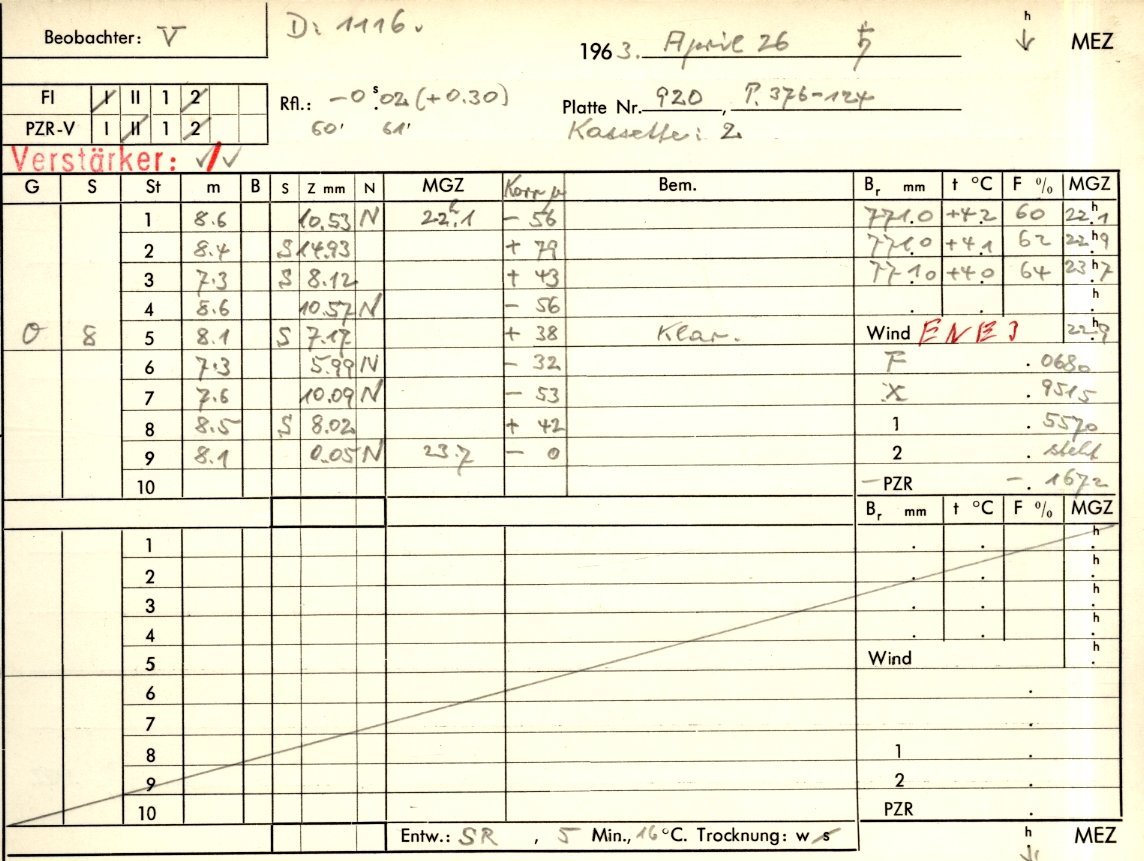 Beobachter: V
D: 1116.
1963. April 26 ♄
h ↓ MEZ
FI I II 1 2
PZR-V I II 1 2
Rfl.: -0ˢ.02 (+0.30)
60' 61'
Platte Nr. 920, P. 376-124
Kassette: 2
Verstärker: √/√
G S St m B S Z mm N MGZ Korr μ Bem. Bᵣ mm t °C F % MGZ
1 8.6 10.53 N 22ʰ.1 - 56 771.0 +4.2 60 22ʰ.1
2 8.4 S 14.93 + 79 771.0 +4.1 62 22ʰ.9
3 7.3 S 8.12 + 43 771.0 +4.0 64 23ʰ.7
4 8.6 10.57 N - 56 . . h .
0 8 5 8.1 S 7.17 + 38 Klar. Wind ENE 3 22ʰ.9
6 7.3 5.99 N - 32 F .0680
7 7.6 10.09 N - 53 X .9515
8 8.5 S 8.02 + 42 1 .5570
9 8.1 0.05 N 23.7 - 0 2 . steht
10 -PZR -.1672
Bᵣ mm t °C F % MGZ
1 . . h .
2 . . h .
3 . . h .
4 . . h .
5 Wind h .
6 .
7 .
8 1 .
9 2 .
10 PZR .
Entw.: SR, 5 Min., 16°C. Trocknung: w s
h ↓ MEZ